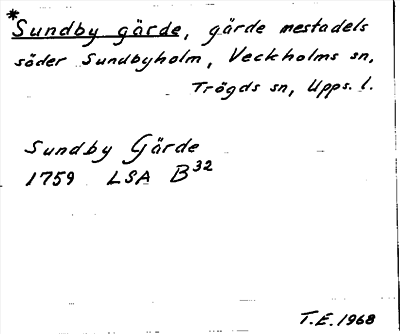 *Sundby gärde, gärde mestadels
söder Sundbyholm, Veckholms sn,
Trögds sn, Upps. l.
Sundby Gärde
1759 LSA B32
T.E. 1968